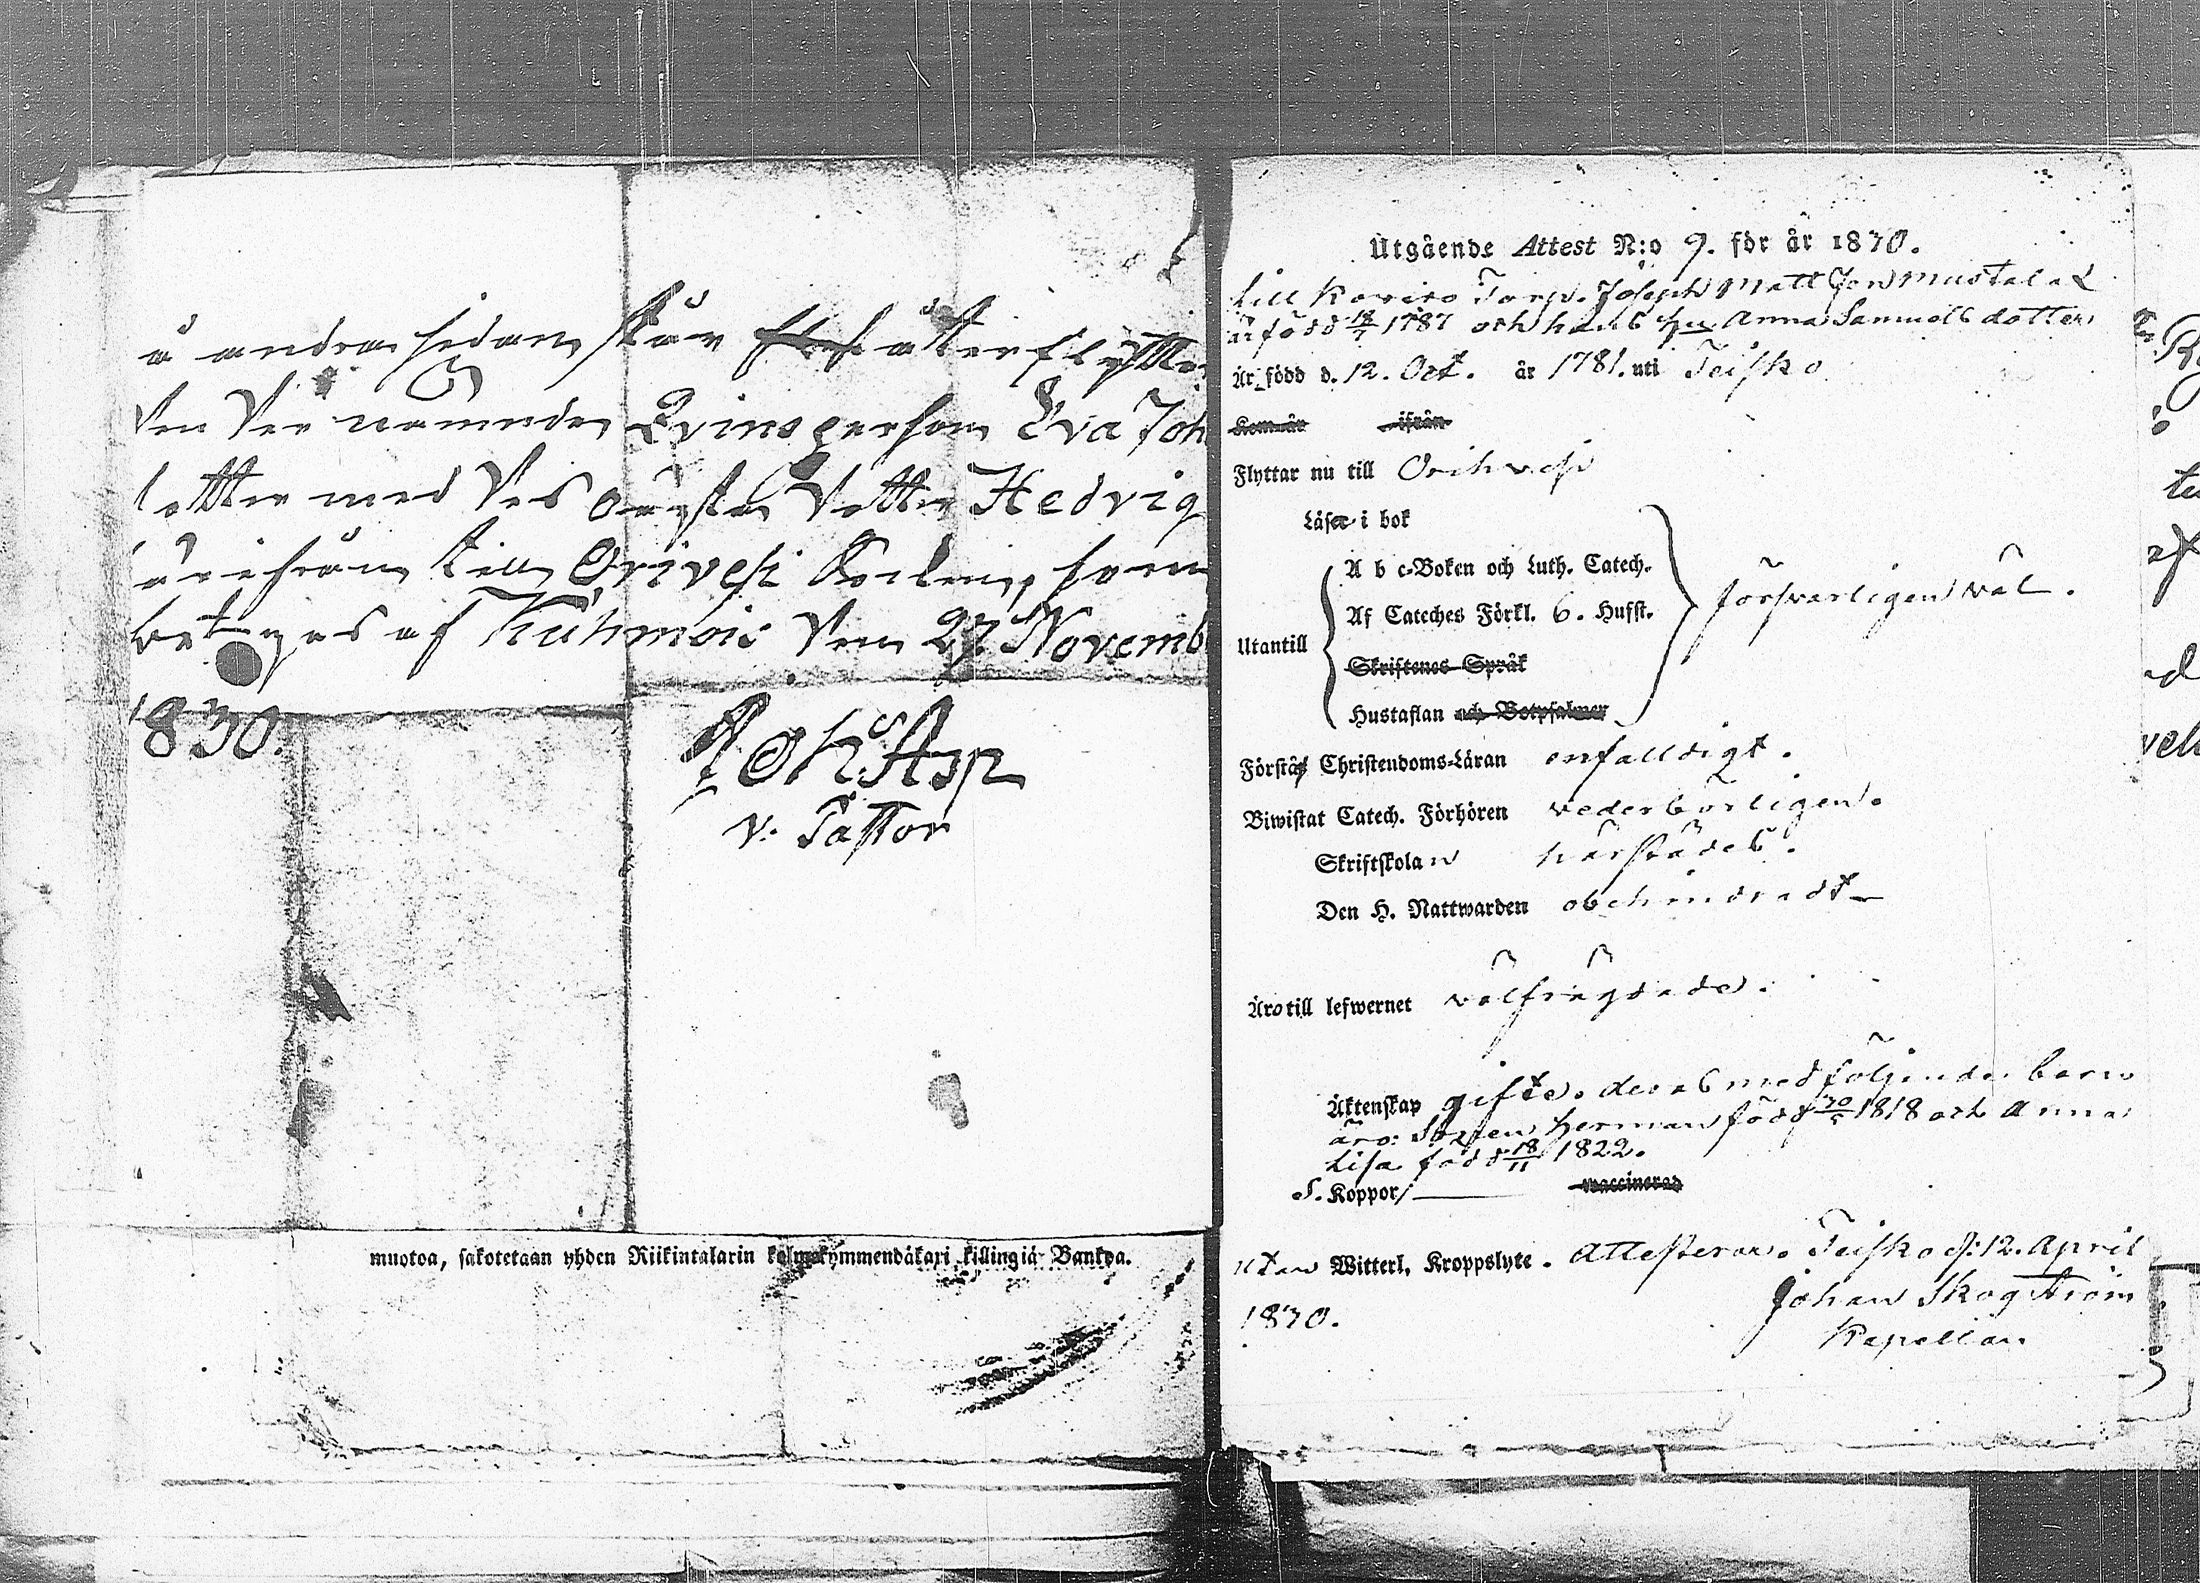 å andra sidan står återflyttar
den der nämnde Qvinsperson Eva Joh
dotter med des oägta dotter Hedvig
härifrån till Orivesi Socken, som
betygas af Kuhmois den 27 Novemb
1830.
Joh: Asp
v. Pastor
muotoa, sakotetaan yhden Riikintalarin kolmekymmendäkaxi killingiä Bankoa.
Utgående Attest N:o 9. för år 1830.
till Torp. Joseph Matt Son Mustal
är född 18/7 1787 och hans hu Anna Samuels dotter
Är född d. 12. Oct. år 1781. uti Teisko
Kom år ifrån
Flyttar nu till Orihvesi
Läser i bok
A b c-Boken och Luth. Catech.
Af Cateches Förkl. 6. Hufst.
försvarligen väl.
Utantill
Skriftenes Språk
Hustaflan och Botpsalmer
Förstå Christendoms-Läran enfalldigt.
Biwistat Catech. Förhören vederbörligen.
Skriftskolan härstädes.
Den H. Nattwarden obehindradt
Äro till lefwernet välfrägdade.
Äktenskap gifte. deras medföljande barn
äro: Sonen Herman född 30/5 1818 och Anna
Lisa född 18/11 1822.
Koppor waccinerad
utan Witterl. Kroppslyte. Attesterar. Teisko d: 12. April
1830.
Johan Skogström
Kapellan